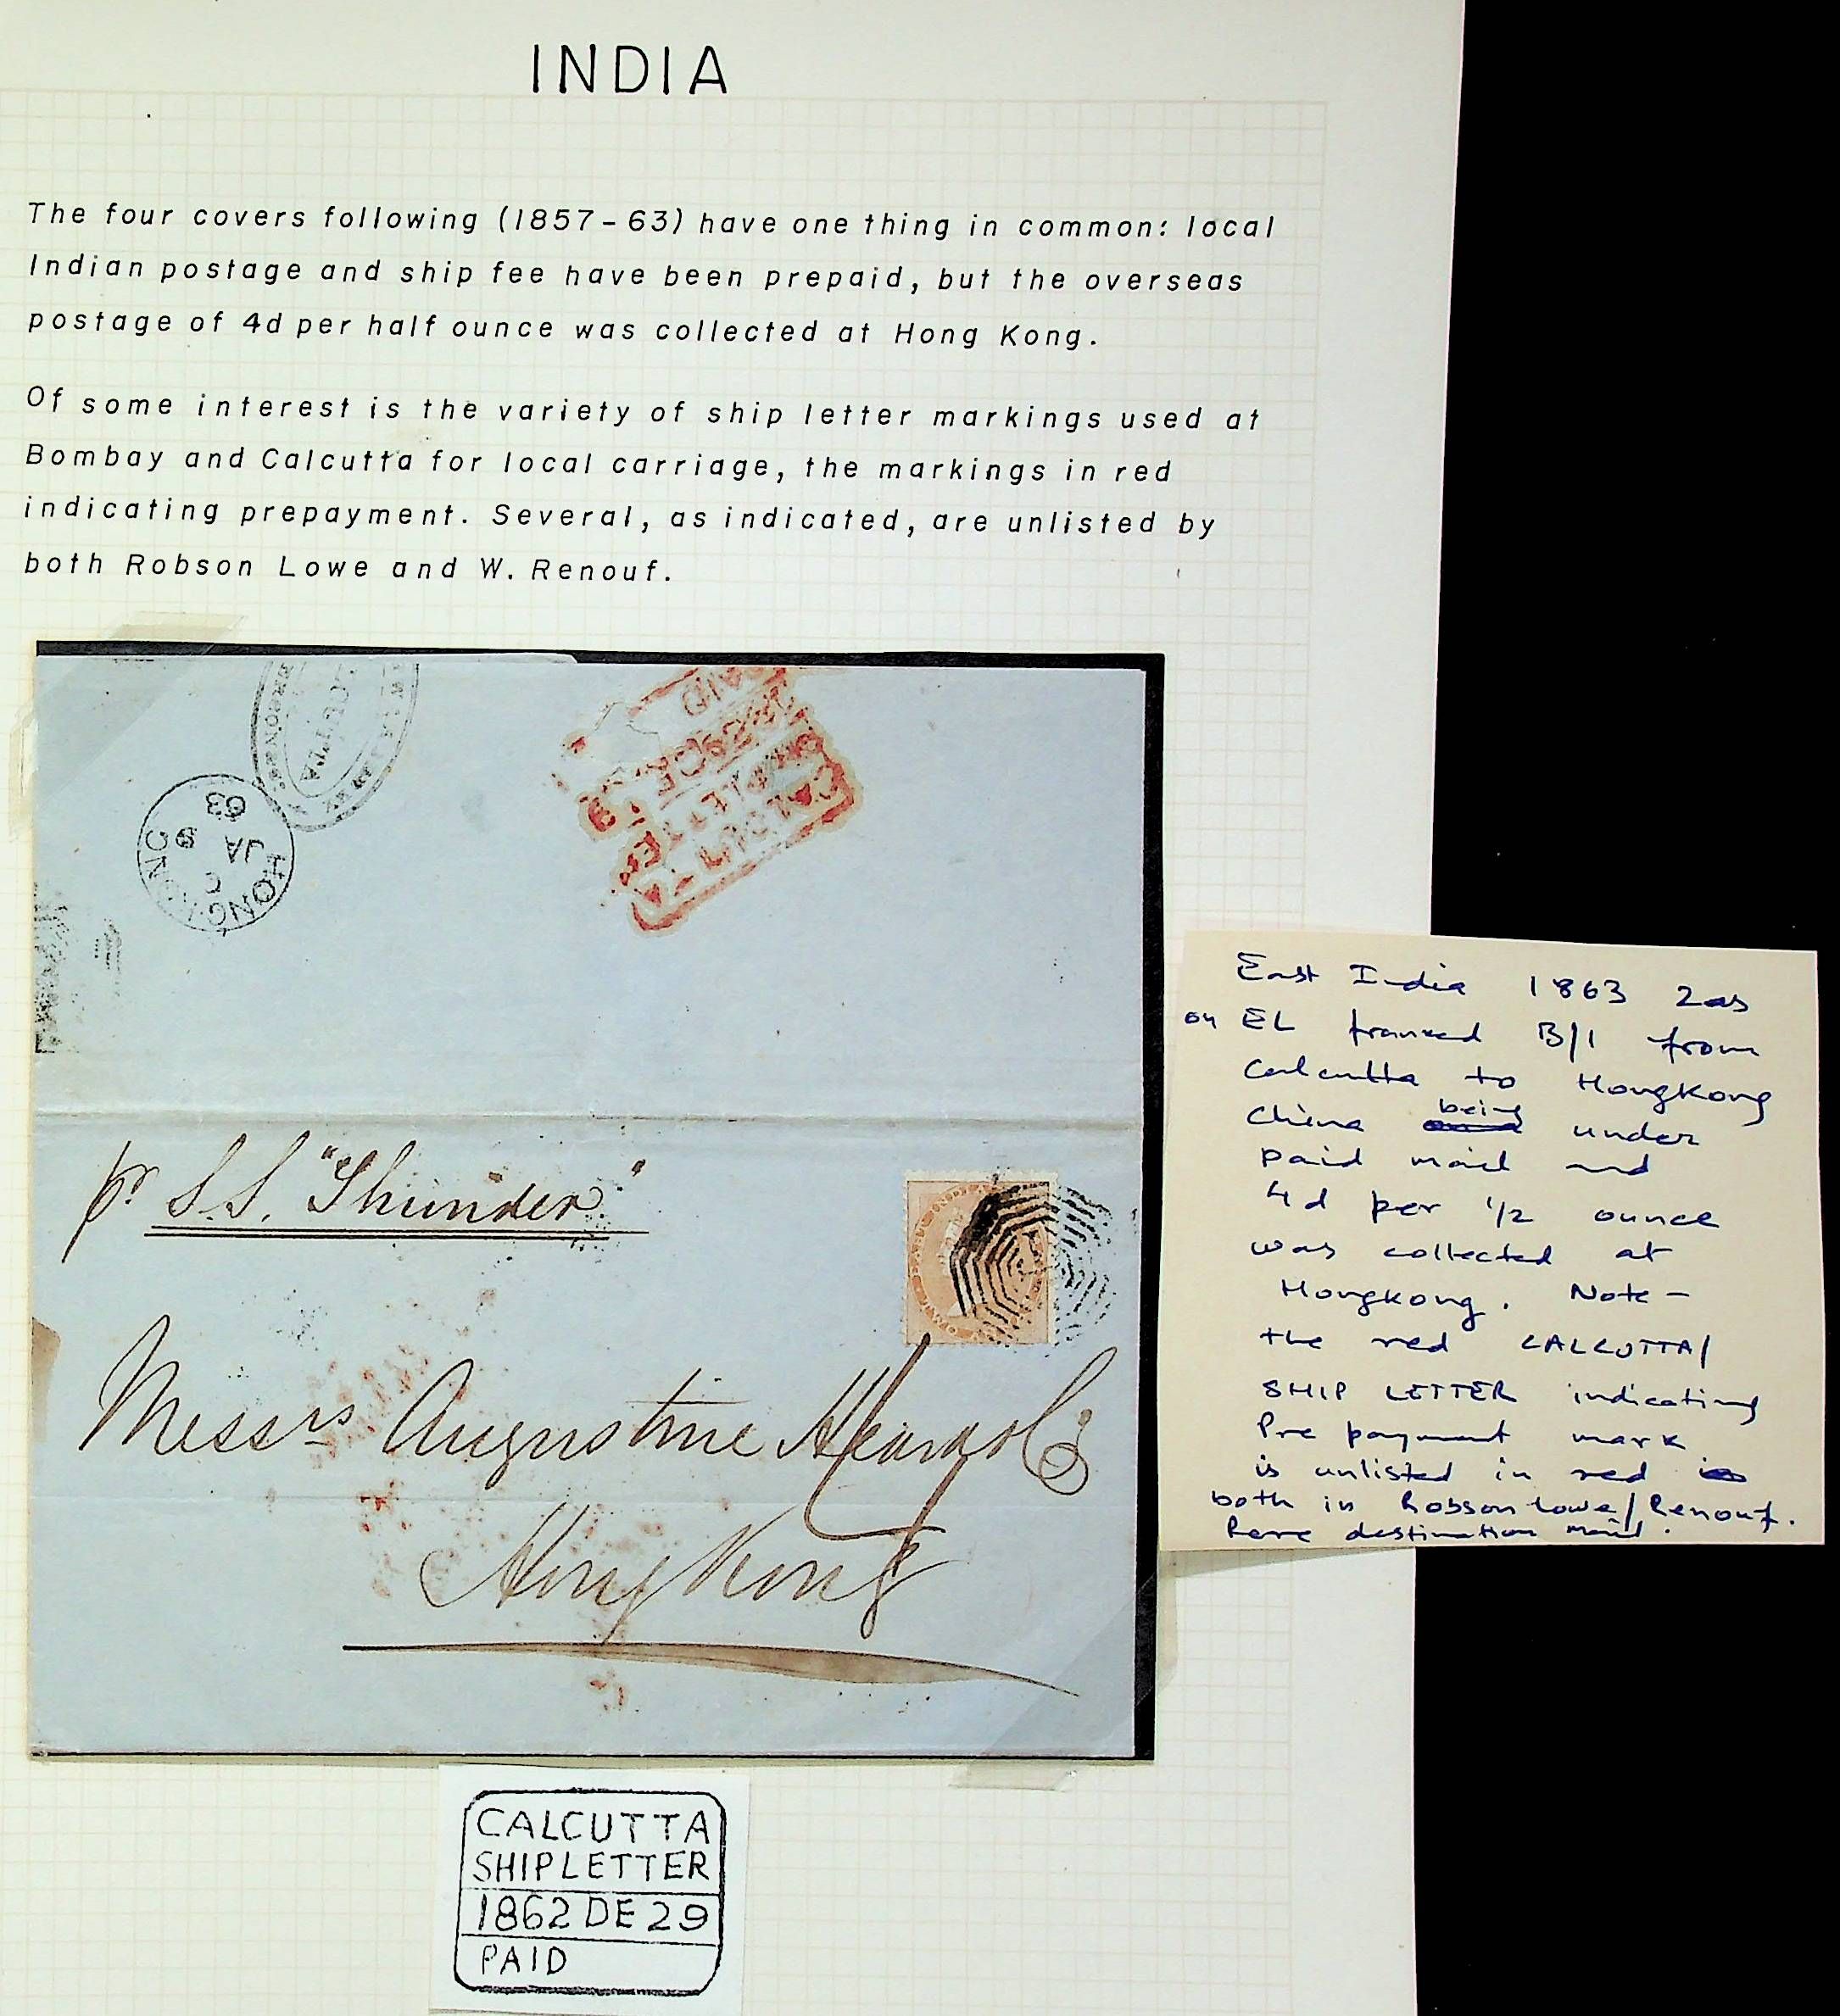 INDIA
The four covers following (1857-63) have one thing in common: local
Indian postage and ship fee have been prepaid, but the overseas
postage of 4d per half ounce was collected at Hong Kong.
Of some interest is the variety of ship letter markings used at
Bombay and Calcutta for local carriage, the markings in red
indicating prepayment. Several, as indicated, are unlisted by
both Robson Lowe and W. Renouf.
HONG KONG
C
JA 9
63
pr S.S. "Thunder"
Messrs Augustine Heard & Co
Hong Kong
CALCUTTA
SHIP LETTER
1862 DE 29
PAID
East India 1863 2as
on EL franked B/1 from
Calcutta to HongKong
China being under
paid mail and
4d per 1/2 ounce
was collected at
Hongkong. Note -
the red CALCUTTA/
SHIP LETTER indicating
Pre payment mark
is unlisted in red
both in Robson Lowe/Renouf.
Rare destination mail.